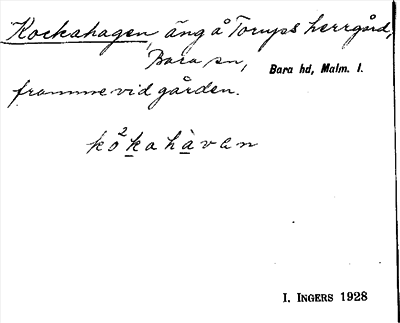 Kockahagen, äng å Torups herrgård,
Bara sn, Bara hd, Malm. l.
framme vid gården.
kò²kahàvan
I. INGERS 1928